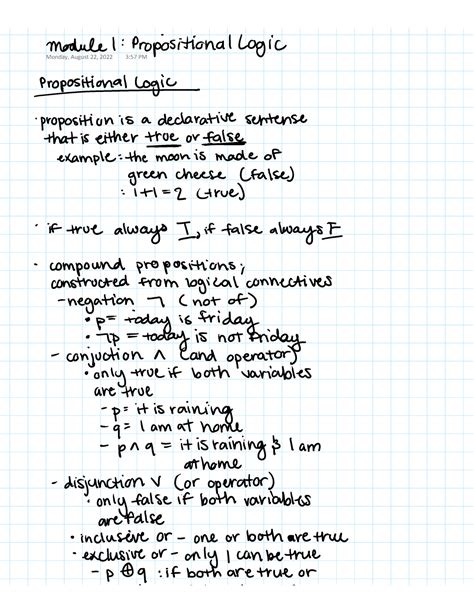 module 1: Propositional Logic
Monday, August 22, 2022 3:57 PM
Propositional Logic
· proposition is a declarative sentense
that is either true or false
example: the moon is made of
green cheese (false)
: 1+1=2 (true)
· if true always T, if false always F
· compound propositions;
constructed from logical connectives
- negation ¬ (not of)
• p= today is friday
• ¬p = today is not friday
- conjuction ∧ (and operator)
• only true if both variables
are true
- p= it is raining
- q= I am at home
- p∧q = it is raining & I am
at home
- disjunction ∨ (or operator)
• only false if both variables
are false
• inclusive or - one or both are true
• exclusive or - only 1 can be true
- p ⊕ q : if both are true or